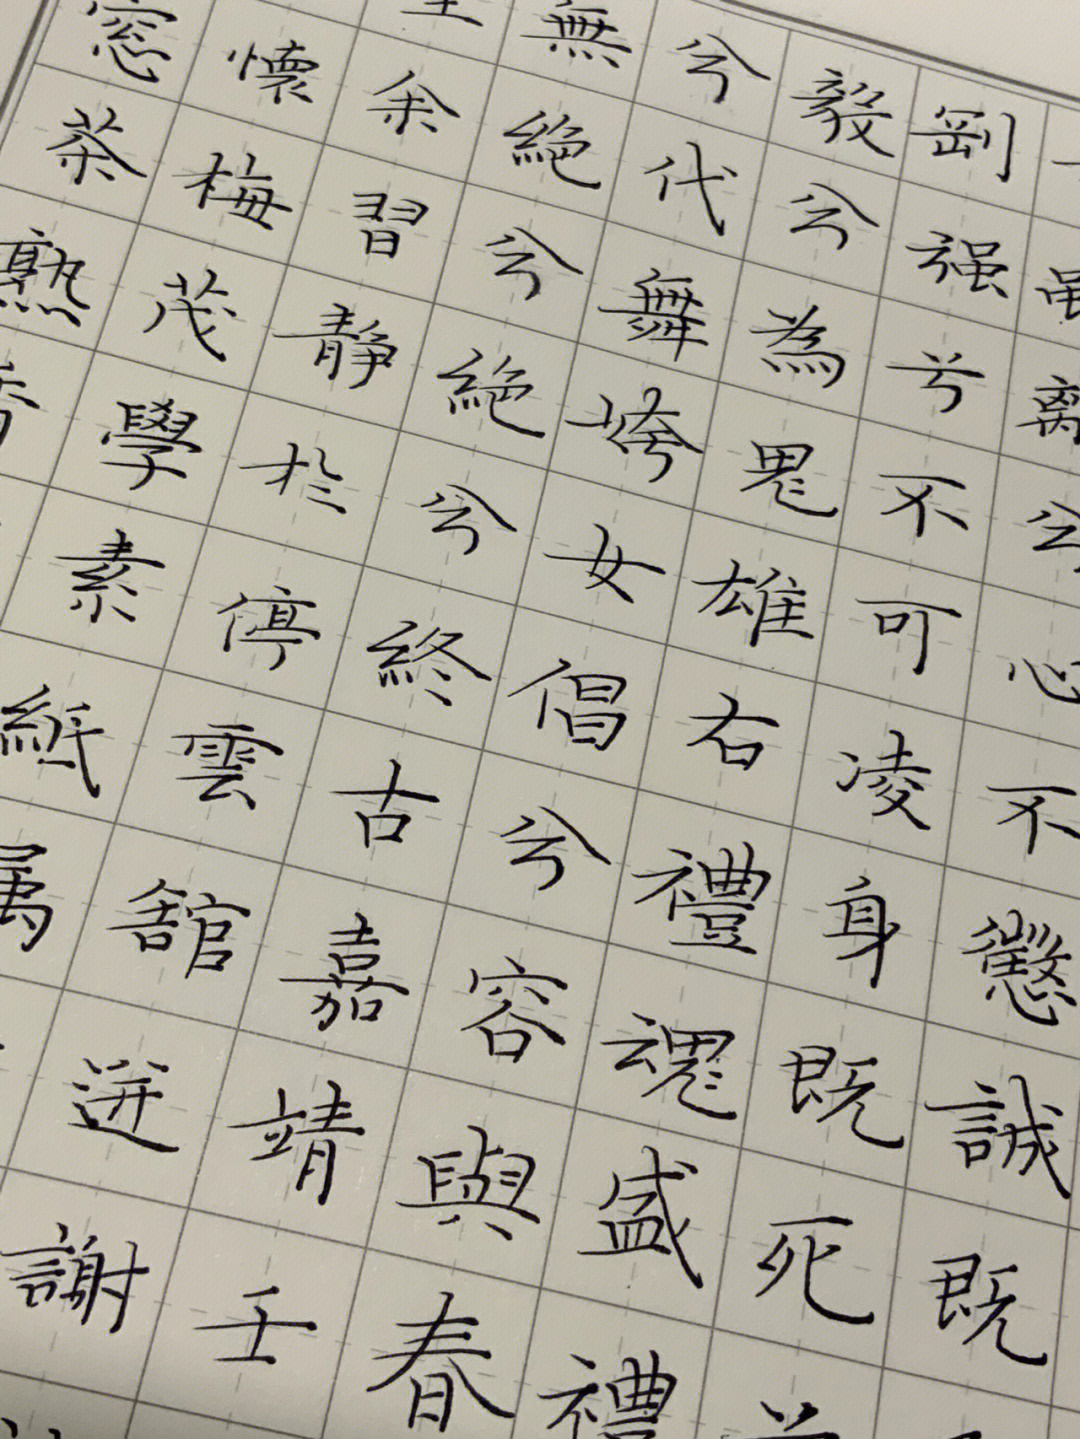 雖離兮心不懲誠既
剛强兮不可凌身既死
毅兮為鬼雄右禮魂盛禮
兮代舞姱女倡兮容與春
無絕兮絕兮終古嘉靖壬
余習靜於停雲館迸謝
懷梅茂學素紙属
窓茶熟香